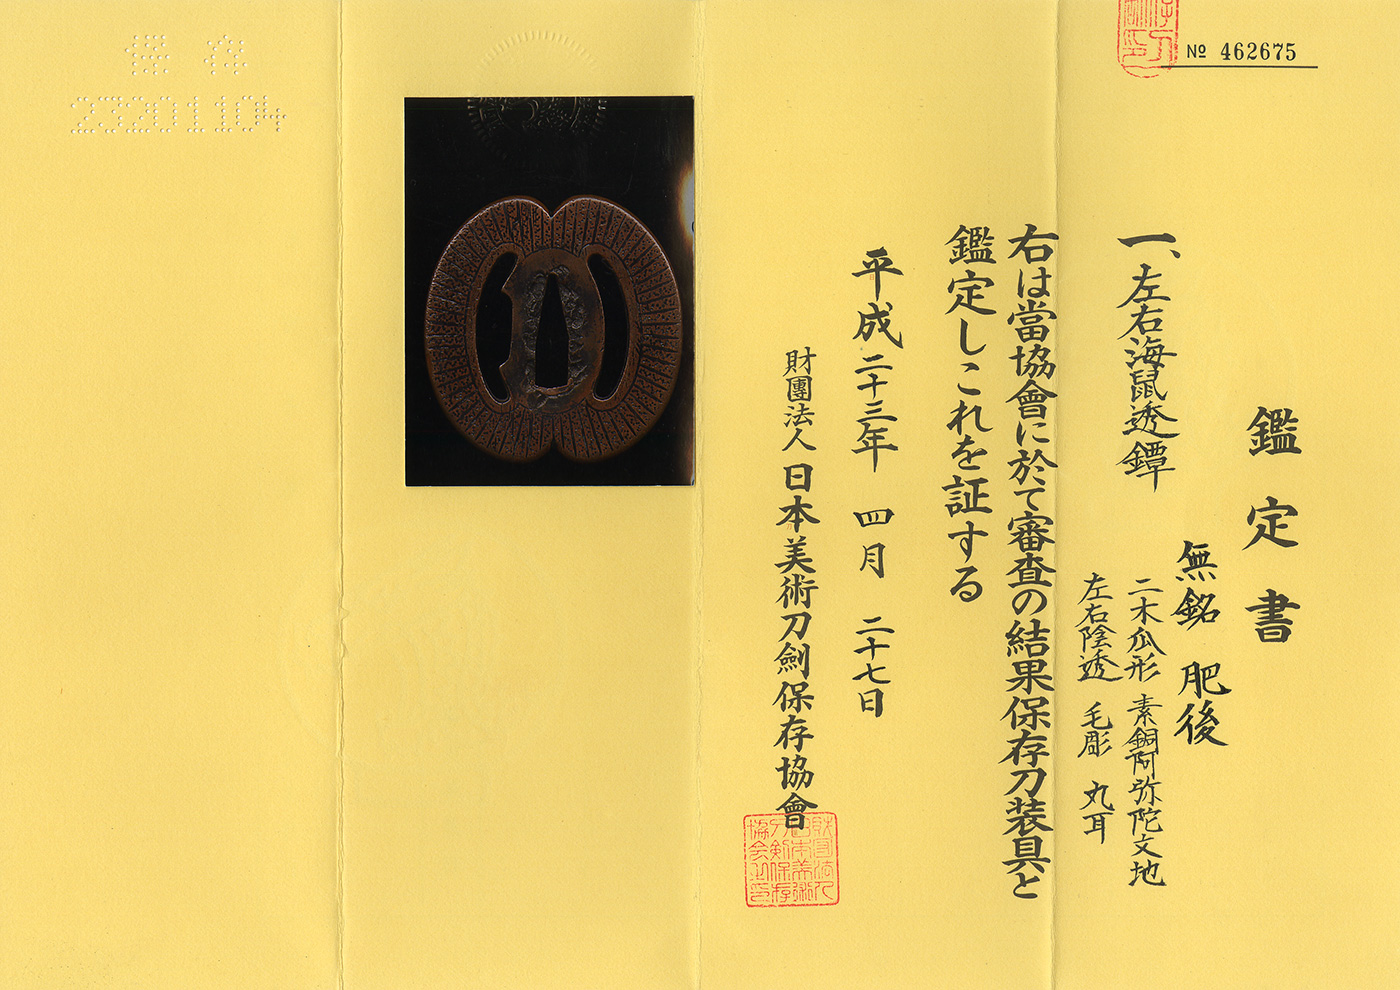 № 462675
鑑定書
一、左右海鼠透鐔
無銘 肥後
二木瓜形 素銅阿弥陀文地
左右陰透 毛彫 丸耳
右は當協會に於て審査の結果保存刀装具と
鑑定しこれを証する
平成二十三年 四月 二十七日
財團法人日本美術刀劍保存協會
保存
23201104